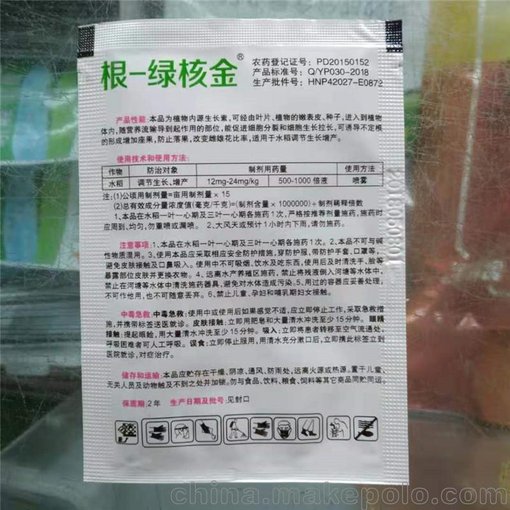 根一绿核金®
农药登记证号: PD20150152
产品标准号: Q/YP030-2018
生产批准号: HNP42027-E0872
产品性能 本品为植物内源生长素,可经由叶片、植物的嫩表皮、种子,进入到植物
体内,随营养流输导到起作用的部位,能促进细胞分裂和细胞生长拉长,可诱导不定根
的形成增加座果,防止落果,改变雌雄花比率,适用于水稻调节生长、增产。
使用技术和使用方法:
作物 防治对象 制剂用药量 使用方法
水稻 调节生长、增产 12mg-24mg/kg 500-1000 倍液 喷雾
注: (1)公顷用制剂量=亩用制剂量 × 15
(2)总有效成分浓度值(毫克/千克)=(制剂含量 × 1000000)÷制剂稀释倍数
1、本品在水稻一叶一心期及三叶一心期各施药 1 次,严格按推荐剂量施药,施药时
应周到、均匀,勿重喷或漏喷。 2、大风天或预计 1 小时内下雨,请勿施药。
注意事项: 1、本品在水稻一叶一心期及三叶一心期各施药 1 次。2、本品不可与碱
性物质混用。3、使用本品应采取相应安全防护措施,穿防护服,带防护手套、口罩等,
避免皮肤接触及口鼻吸入。使用中不可吸烟、饮水及吃东西,使用后及时清洗手、脸等
暴露部位皮肤并更换衣物。4、远离水产养殖区施药,禁止将残液倒入河塘等水体中,
禁止在河塘等水体中清洗施药器具,避免对水体造成污染。5、用过的容器应善处理;
不可作他用,也不可随意丢弃。6、禁止儿童、孕妇和哺乳期妇女接触。
中毒急救: 中毒急救:使用中或使用后如果感觉不适,应立即停止工作,采取急救措
施,并携带标签送医就诊。皮肤接触: 立即用肥皂和大量清水冲洗至少 15 分钟。眼睛接
触: 提起眼睑,用大量清水冲洗至少 15 分钟。吸入: 立即将患者转移至空气流通处,
呼吸困难者可人工呼吸。误食: 立即停止服用,用清水充分漱口后,立即携此标签立到
医院就诊,对症治疗。
储存和运输: 本品应贮存在干燥、阴凉、通风、防雨处,远离火源或热源。置于儿童、
无关人员及动物触及不到之处并加锁。勿与食品、饮料、粮食、饲料等其它商品同贮同运。
保质期: 2 年 生产日期及批号: 见封口
china.makepolo.com